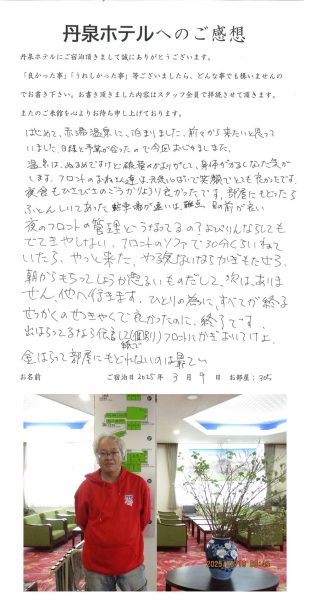 丹泉ホテルへのご感想
丹泉ホテルにご宿泊頂きまして誠にありがとうございます。
「良かった事」「うれしかった事」等ございましたら、どんな事でも構いませんの
でお書き下さい。お書き頂きました内容はスタッフ全員で拝読させて頂きます。
またのご来館を心よりお待ち申し上げております。
はじめて、赤湯温泉に、泊まりました、前々から来たいと思って
いました、日程と予算が合ったので今回おじゃましました。
温泉は、ぬるめですけど硫黄のかおりがして、身体がかるくなった気が
します。フロントのおねえさん達は、元気いっぱいで笑顔でとても良かったです、
夜食もひさびさのごうかりより良かったです、部屋にもどったら
ふとんしいてあった 駐車場が遠いは、難点 目の前が良い
夜のフロントの管理どうなってるの?よびりんならしても
でてきやしない、フロントのソファで30分くらいねて
いたら、やっと来た、やる気ないならかぎもたせろ、
朝からもちっとしょうか悪るいものだして、次は、ありま
せん、他へ行きます、ひとりの為に、すべてが終る
せっかくのせっきゃくで良かったのに、終了です、
出はらってるなら伝言して(個別)フロントにかぎおいてけよ、
紙で
金はらって部屋にもどれないのは
お名前 ご宿泊日 2025年 3月 9日 お部屋；305